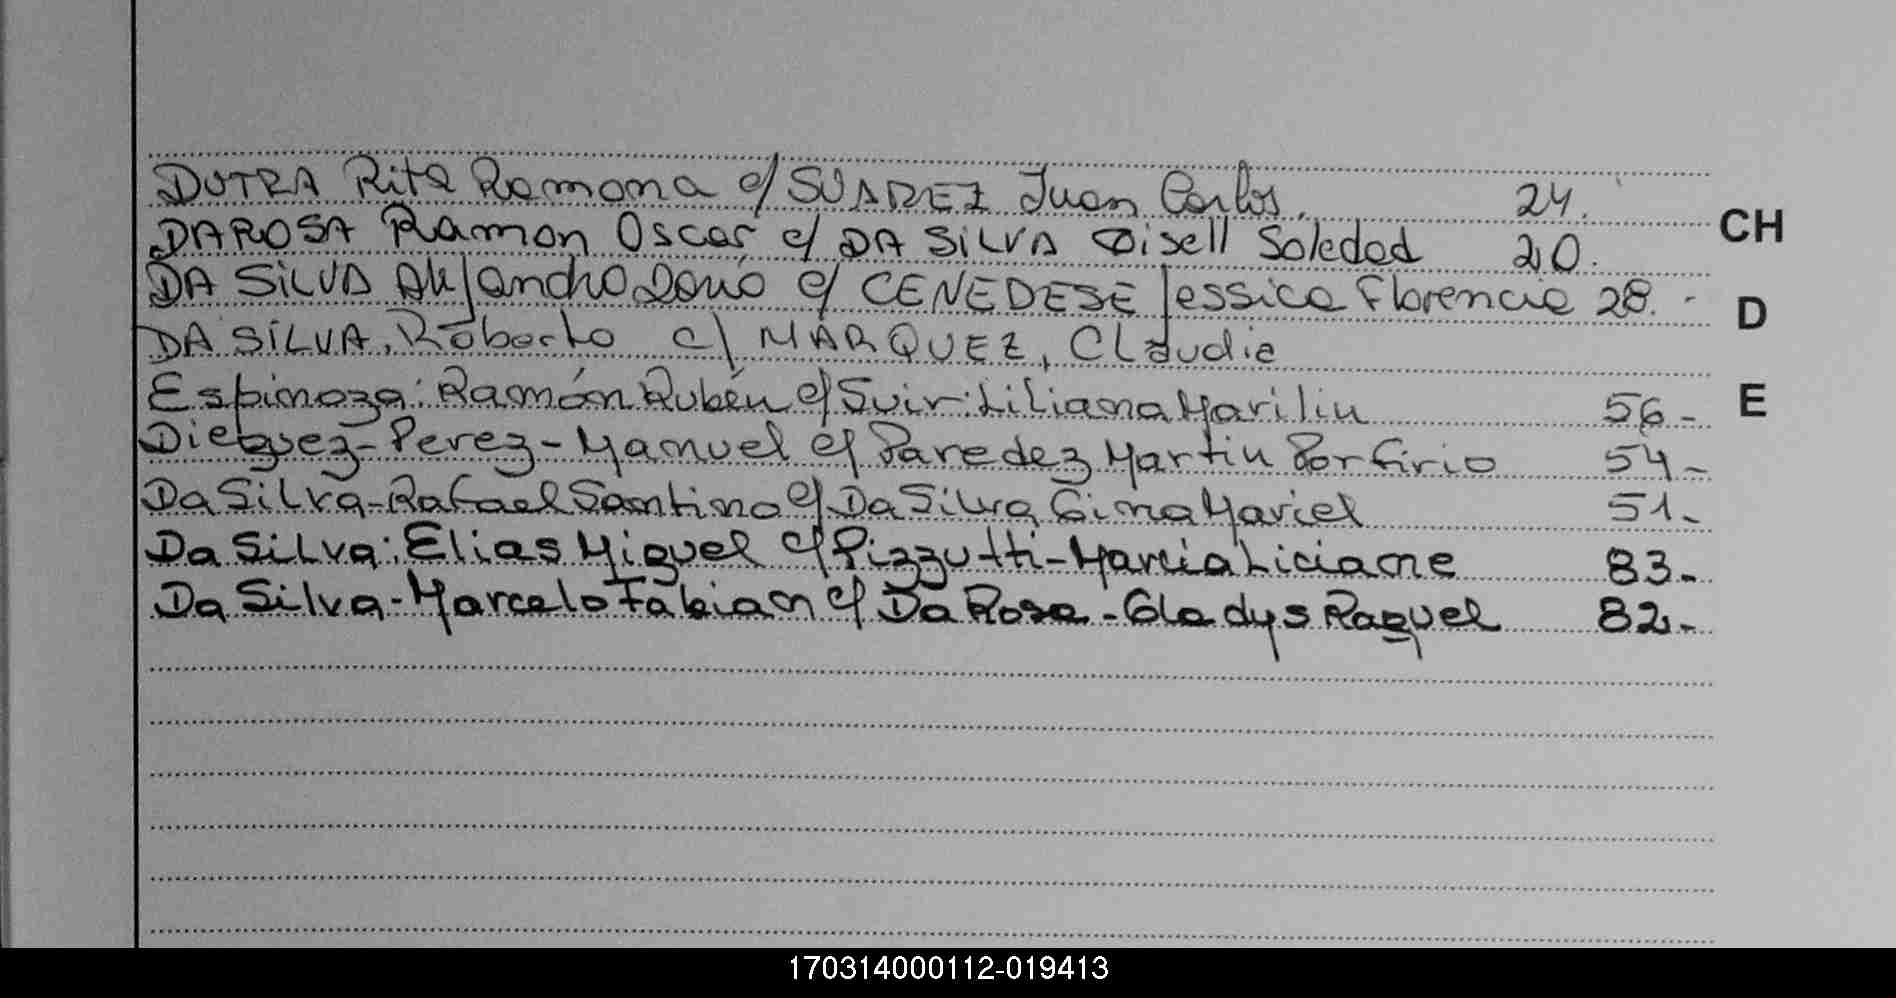 DUTRA Rita Ramona c/ SUAREZ Juan Carlos. 24.
DAROSA Ramon Oscar c/ DA SILVA Gisell Soledad 20.
CH
DA SILVA Alejandro Dario c/ CENEDESE Jessica Florencia 28.
D
DA SILVA, Roberto c/ MARQUEZ, Claudia
Espinoza: Ramón Rubén c/ Suir: Liliana Mariliu 56-
E
Dieguez-Perez-Manuel c/ Paredez Martin Porfirio 54-
Da Silva-Rafael Santino c/ Da Silva Gina Mariel 51-
Da Silva: Elias Miguel c/ Pizzutti-Marcia Liciane 83-
Da Silva-Marcelo Fabian c/ Da Rosa-Gladys Raquel 82-
170314000112-019413